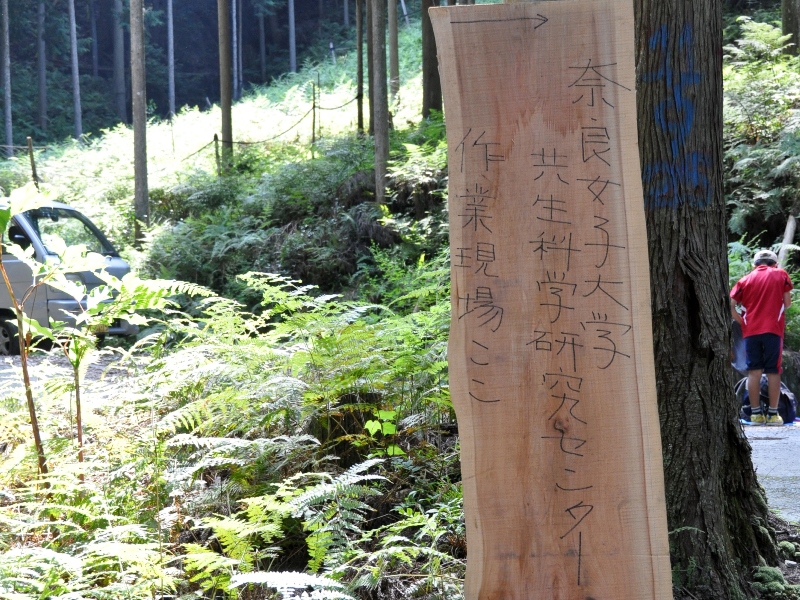 奈良女子大学
共生科学研究センター
作業現場ここ